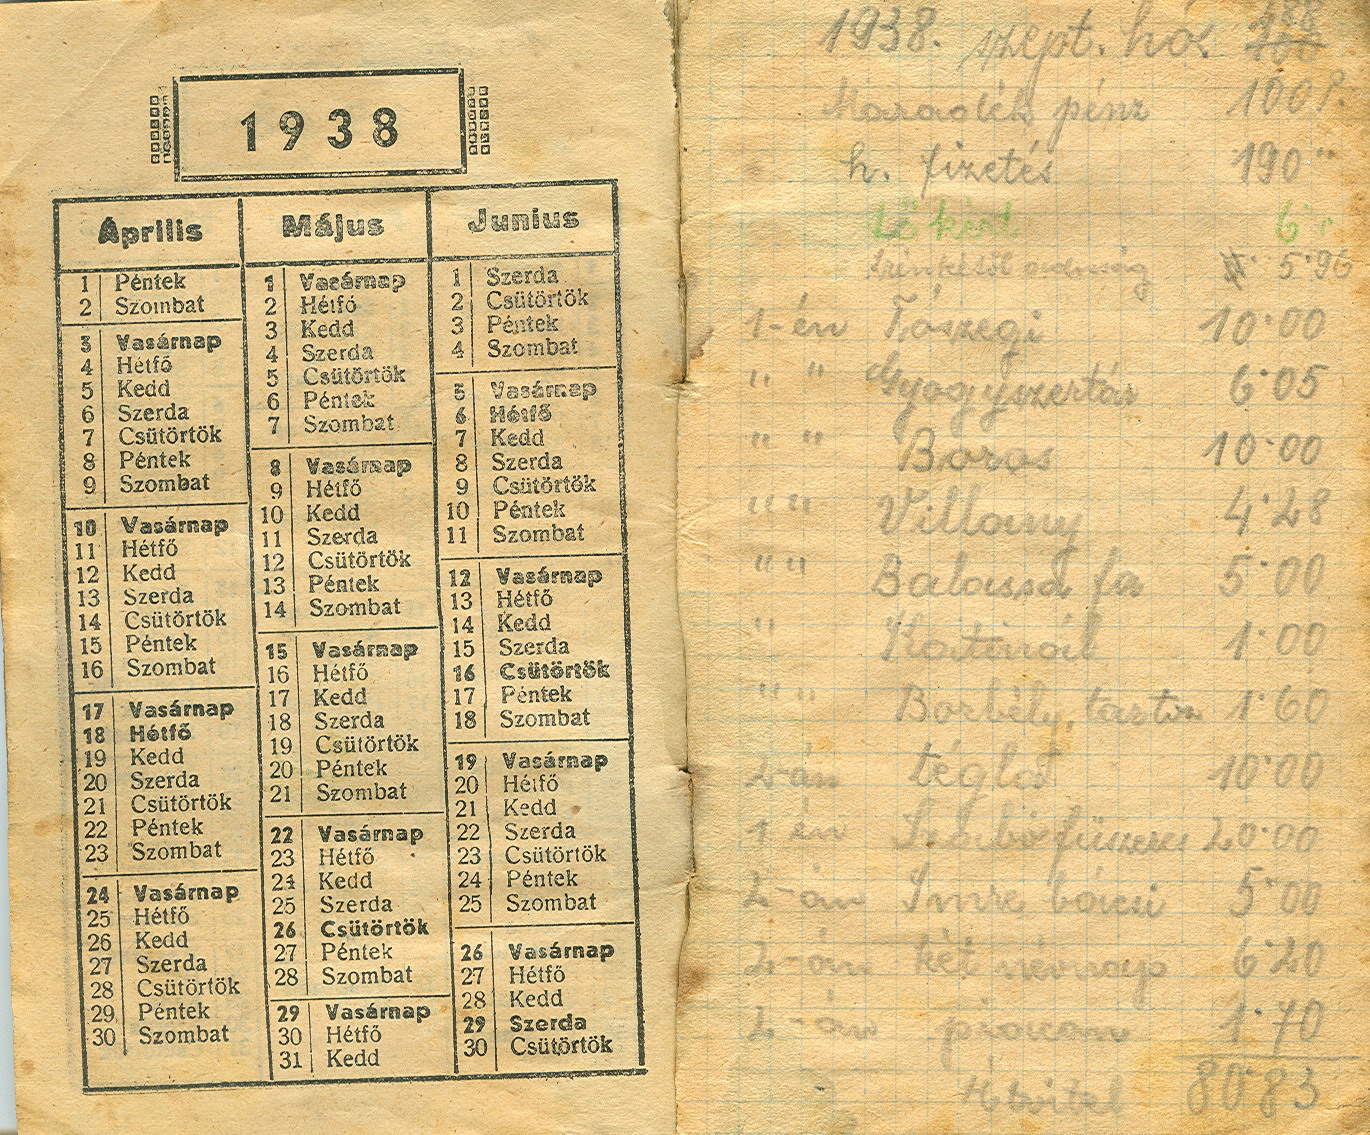 1938
Április
1 Péntek
2 Szombat
3 Vasárnap
4 Hétfő
5 Kedd
6 Szerda
7 Csütörtök
8 Péntek
9 Szombat
10 Vasárnap
11 Hétfő
12 Kedd
13 Szerda
14 Csütörtök
15 Péntek
16 Szombat
17 Vasárnap
18 Hétfő
19 Kedd
20 Szerda
21 Csütörtök
22 Péntek
23 Szombat
24 Vasárnap
25 Hétfő
26 Kedd
27 Szerda
28 Csütörtök
29 Péntek
30 Szombat
Május
1 Vasárnap
2 Hétfő
3 Kedd
4 Szerda
5 Csütörtök
6 Péntek
7 Szombat
8 Vasárnap
9 Hétfő
10 Kedd
11 Szerda
12 Csütörtök
13 Péntek
14 Szombat
15 Vasárnap
16 Hétfő
17 Kedd
18 Szerda
19 Csütörtök
20 Péntek
21 Szombat
22 Vasárnap
23 Hétfő
24 Kedd
25 Szerda
26 Csütörtök
27 Péntek
28 Szombat
29 Vasárnap
30 Hétfő
31 Kedd
Junius
1 Szerda
2 Csütörtök
3 Péntek
4 Szombat
5 Vasárnap
6 Hétfő
7 Kedd
8 Szerda
9 Csütörtök
10 Péntek
11 Szombat
12 Vasárnap
13 Hétfő
14 Kedd
15 Szerda
16 Csütörtök
17 Péntek
18 Szombat
19 Vasárnap
20 Hétfő
21 Kedd
22 Szerda
23 Csütörtök
24 Péntek
25 Szombat
26 Vasárnap
27 Hétfő
28 Kedd
29 Szerda
30 Csütörtök
1938. szept. hó.
Maradék pénz 100 P.
h. fizetés 190 "
6
5·96
1-én Tószegi 10·00
" " Gyógyszertár 6·05
" " Boros 10·00
" " Villany 4·28
" " Balassa fa 5·00
" 1·00
" " Borbély, 1·60
2-án tégla 10·00
1-én 20·00
2-án Imre bácsi 5·00
2-án két 6·20
2-án piacon 1·70
Átvitel 80·83